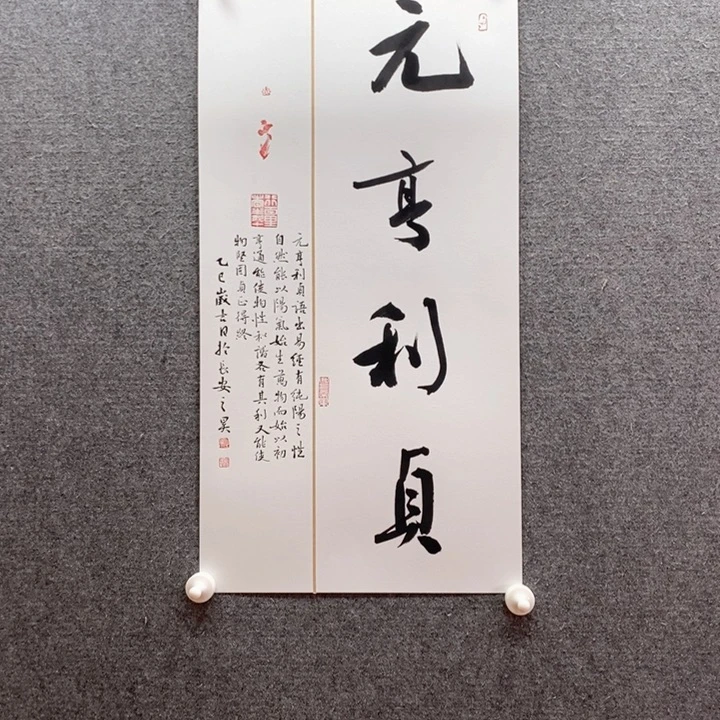 元亨利貞
元亨利貞語出易經有純陽之性
自然能以陽氣始生萬物而始以初
亨通能使物性和諧各有其利又能使
物堅固貞正得終
乙巳歲吉日於長安之昊